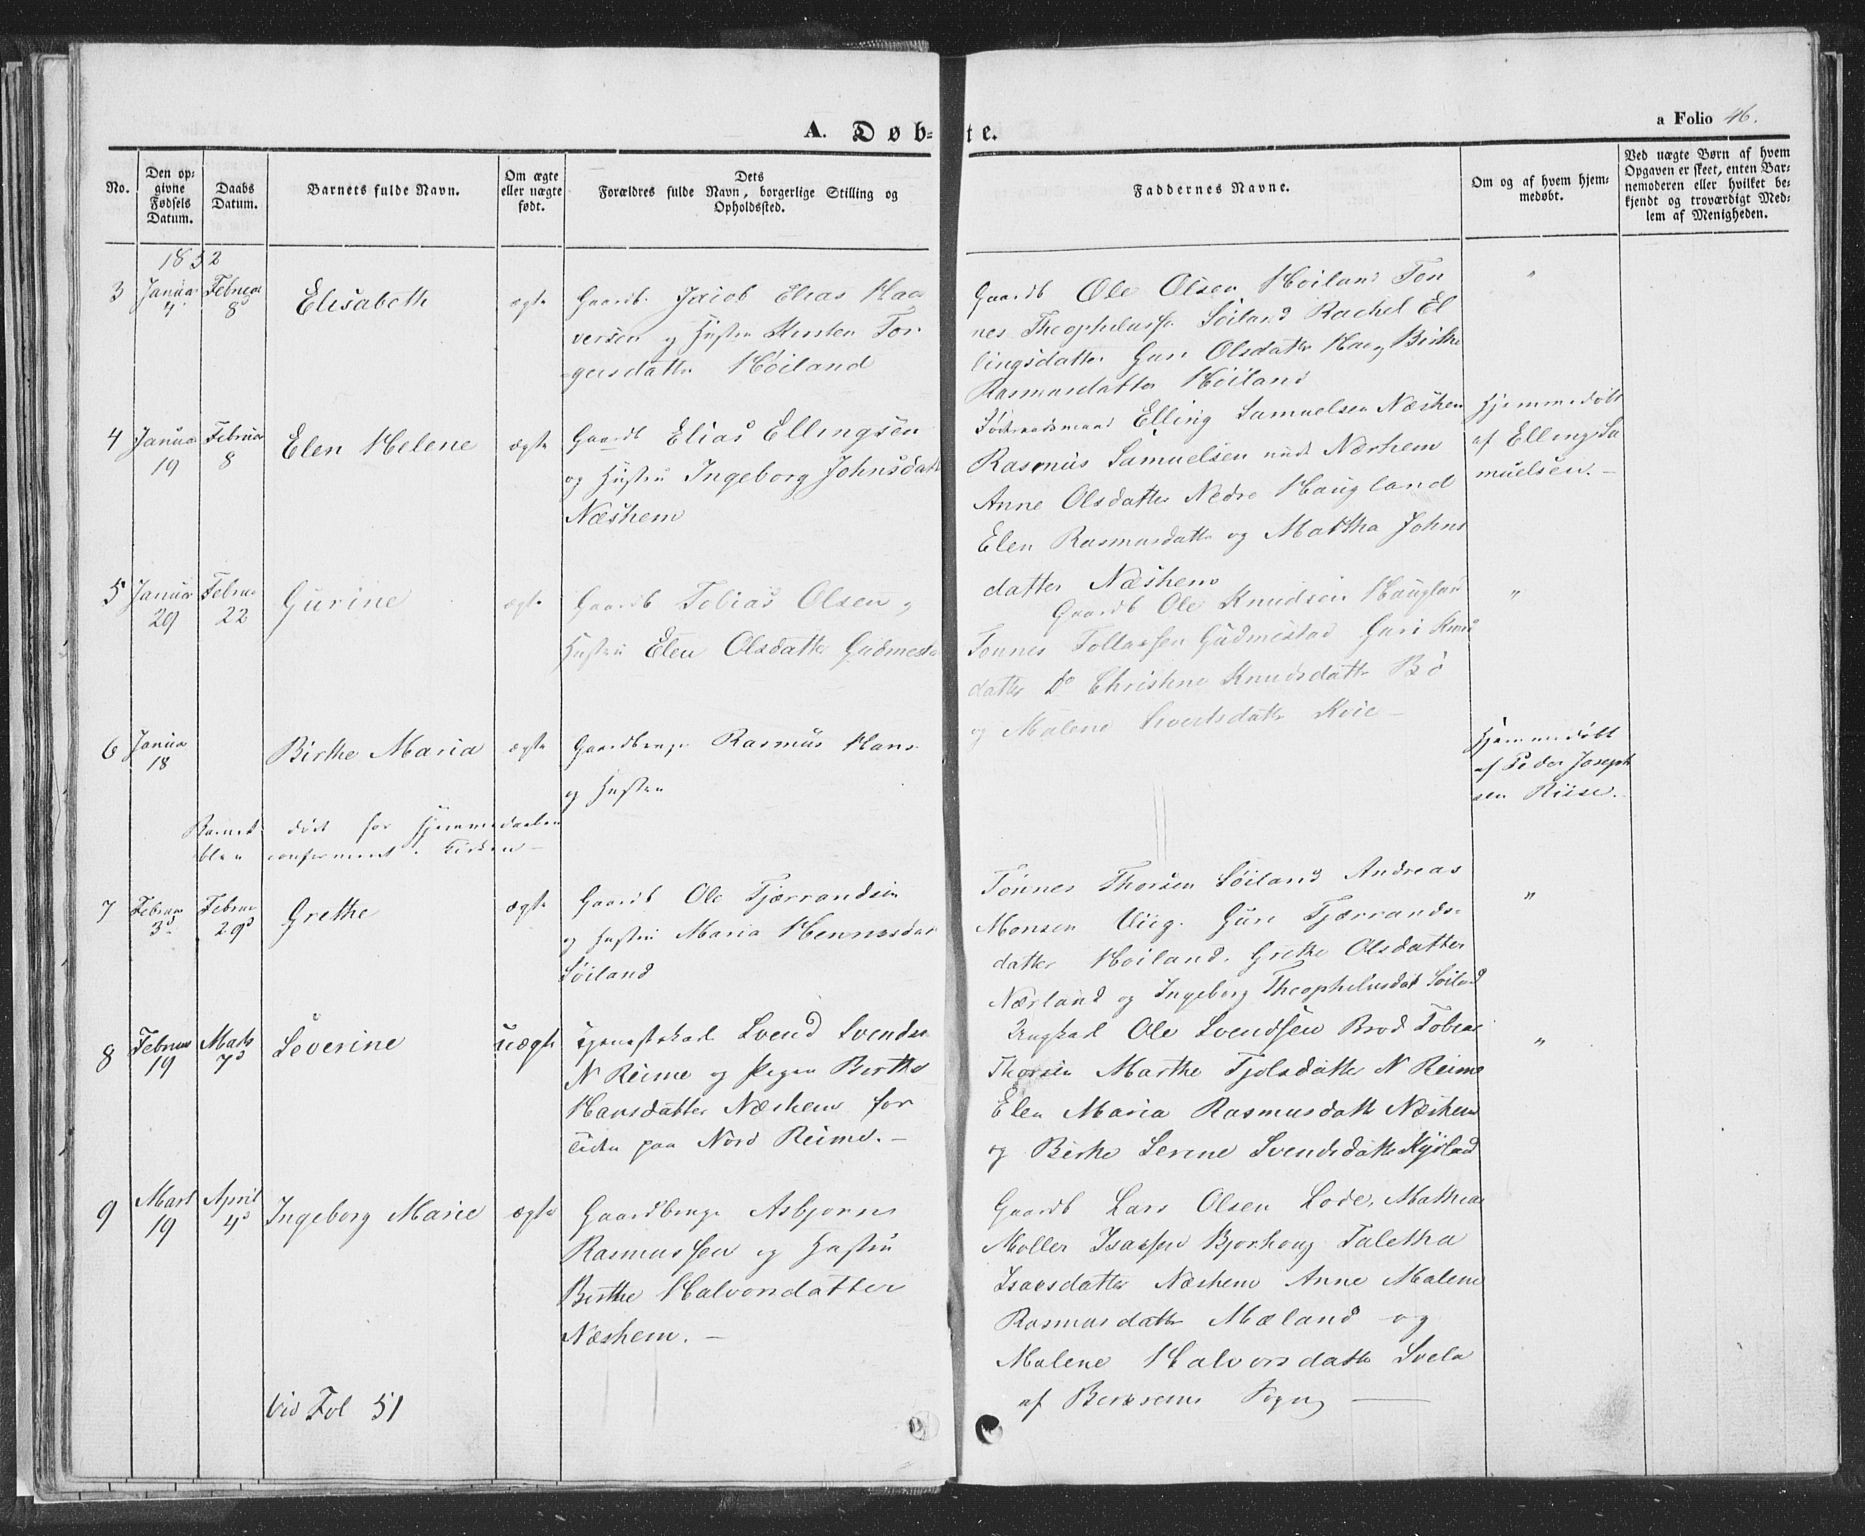 A. Døb-
te.
a Folio 46.
No.
Den op-
givne
Fødsels
Datum.
Daabs
Datum.
Barnets fulde Navn.
Om ægte
eller uægte
født.
Dets
Forældres fulde Navn, borgerlige Stilling og
Opholdssted.
Faddernes Navne.
Om og af hvem hjem-
medøbt.
Ved uægte Børn af hvem
Opgaven er skeet, enten Bar-
nemoderen eller hvilket be-
kjendt og troværdigt Med-
lem af Menigheden.
1852
3 Januar 4 Februar 8d Elisabeth ægte
Gaardb. Jacob Elias Haa
versen og Hustru Kirsten Ton
gersdatter Høiland
Gaardb Ole Olsen Høiland Ton
nes Theophilussen Søiland Rachel El
lingsdatter Guri Olsdatter Haa og Birthe
Rasmusdatter Høiland
"
4 Januar 19 Februar 8 Elen Helene ægte
Gaardb Elias Ellingsen
og Hustru Ingeborg Johnsdatt
Næshem
Elling Samuelsen Næshem
Rasmus Samuelsen Nærhem
Anne Olsdatter Nedre Haugland
Elen Rasmusdatter og Martha Johns
datter Næshem
Hjemmedøbt
af Elling Sa
muelsen. —
5 Januar 29 Februar 22 Gurine ægte
Gaardb Tobias Olsen og
Hustru Elen Olsdatter Gudmesta
Gaardb Ole Knudsen Haugland
Tonnes Tollassen Gudmestad Guri Knud
datter Do Christine Knudsdatter Bø
og Malene Sivertsdatter Kvie —
"
6 Januar 18 Birthe Maria ægte
Gaardbruger Rasmus Hans
og Hustru
Barnet død før Hjemmedaaben
blev confirmeret i Kirken —
Hjemmedøbt
af Peder Joseph
sen Riise. —
7 Februar 3d Februar 29d Grethe ægte
Gaardb Ole Tjerrandsen
og Hustru Maria Hennesdat
Søiland
Tönnes Thorsen Søiland Andreas
Monsen Guri Tjerrands-
datter Høiland. Grethe Olsdatter
Nærland og Ingeborg Theophilusdat Søiland
"
8 Februar 19 Marts 7d Severine uægte
Tjenestekarl Svend Svends
N Reime og Pigen Berthe
Hansdatter Næshem for
Tiden paa Nord Reime. —
Ungkarl Ole Svendsen Brod Tobias
Thorsen Marthe Tjolsdatter N Reime
Elen Maria Rasmusdatt Næshem
og Birthe Serene Svendsdatter
"
9 Mart 19 April 4d Ingeborg Marie ægte
Gaardbruger Asbjorn
Rasmussen og Hustru
Birthe Halvorsdatter
Næshem. —
Gaardb Lars Olsen Lode, Mathias
Møller Isacsen Bjorhoug Taletha
Isacsdatter Næshem Anne Malene
Rasmusdatter Mæland og
Malene Halvorsdatter Svela
af Sogn —
Vid Fol 51